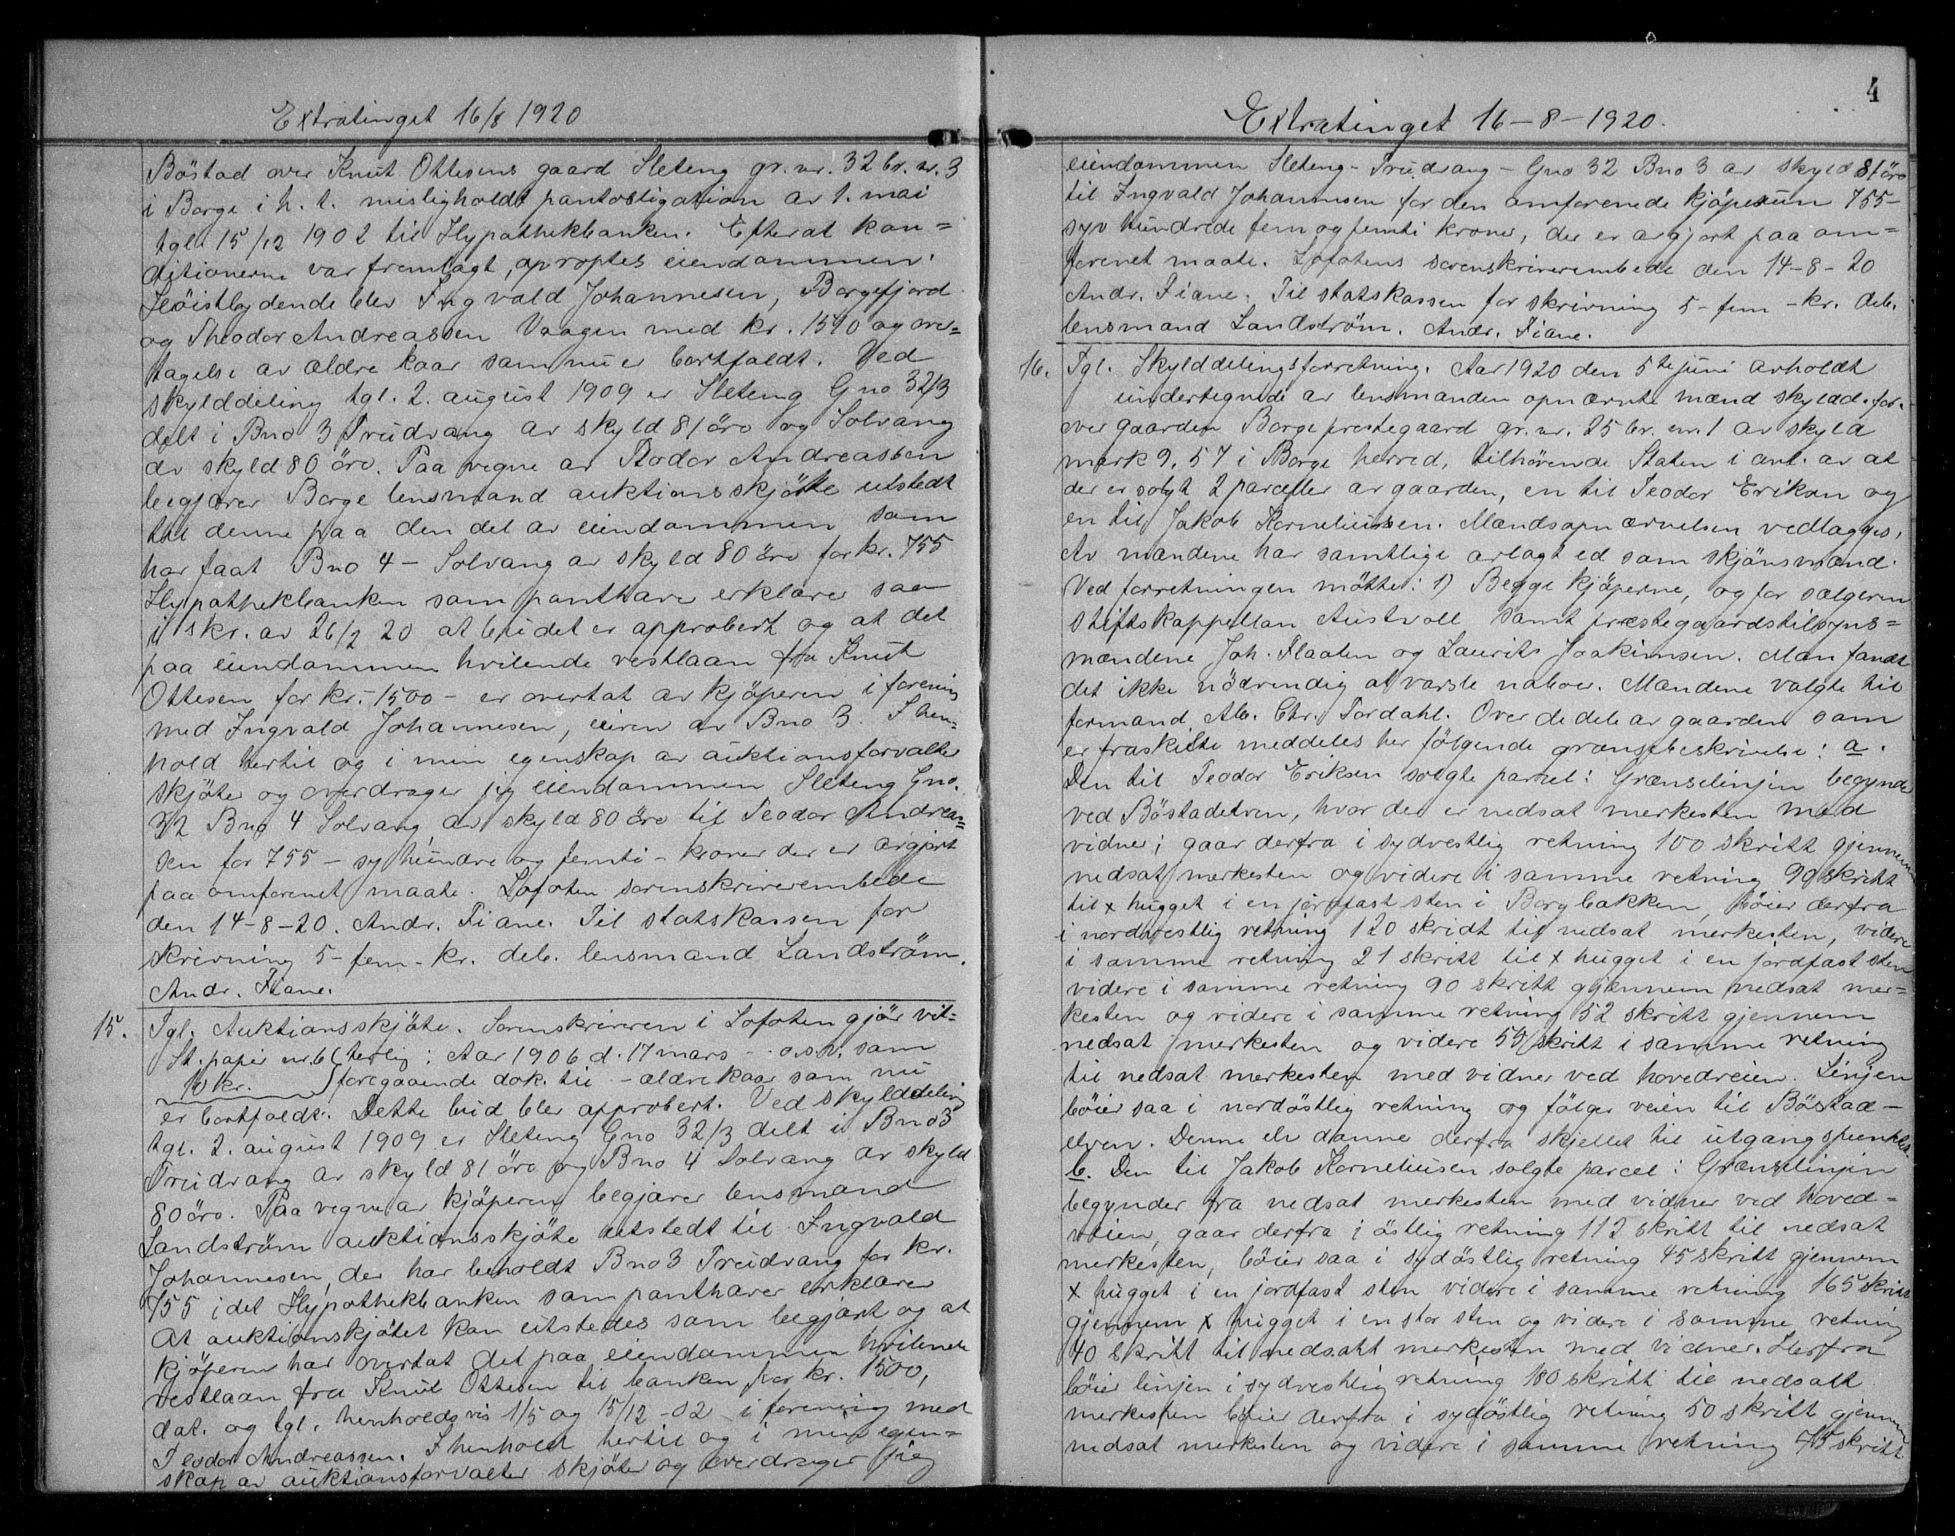 Extratinget 16/8 1920
Böstad over Knut Ottesens gaard Sleteng gr. nr. 32 br. nr. 3
i Borge i h. t. misligholdt pantobligation av 1. mai
tgl. 15/12 1902 til Hypothekbanken. Efterat kon=
ditionerne var fremlagt, oproptes eiendommen.
Höistbydende blev Ingvald Johannesen, Borgefjord
og Theodor Andreassen Vaagen med kr. 1510 og over=
tagelse av ældre kaar som nu er bortfaldt. Ved
skylddeling tgl. 2. august 1909 er Sleteng Gno 32/3
delt i Bno 3 Trudvang av skyld 81 öre og Solvang
av skyld 80 öre. Paa vegne av Teodor Andreassen
begjærer Borge lensmand auktionsskjöte utstedt
til denne paa den del av eiendommen som
har faat Bno 4 - Solvang av skyld 80 öre for kr. 755
Hypothekbanken som panthaver erklærer saa
i skr. av 26/2 20 at budet er approbert og at det
paa eiendommen hvilende restlaan fra Knut
Ottesen for kr. - 1500 - er overtat av kjöperen i forening
med Ingvald Johannesen, eieren av Bno 3. I hen=
hold hertil og i min egenskap av auktionsforvalter
skjöter og overdrager jeg eiendommen Sleteng Gno.
32 Bno 4 Solvang av skyld 80 öre til Teodor Andreas=
sen for 755 - syv hundre og femti - kroner der er avgjort
paa omforenet maate. Lofoten sorenskriverembede
den 14-8-20. Andr. Fiane. Til statskassen for
skrivning 5 - fem - kr. deb. lensmand Landström.
Andr. Fiane.
15. Tgl. Auktionsskjöte. Sorenskriveren i Lofoten gjör vit=
St. papir nr. 6 (terlig: Aar 1906 d. 17 mars - o.s.v. som
10 kr. } foregaaende dok. til - ældre kaar som nu
er bortfaldt. Dette bud blev approbert. Ved skylddeling
tgl. 2. august 1909 er Sleteng Gno 32/3 delt i Bno 3
Trudvang av skyld 81 öre og Bno 4 Solvang av skyld
80 öre. Paa vegne av kjöperen begjærer lensmand
Landström auktionsskjöte utstedt til Ingvald
Johannesen, der har beholdt Bno 3 Trudvang for kr.
755 idet Hypothekbanken som panthaver erklærer
At auktionskjötet kan utstedes som begjært og at
kjöperen har overtat det paa eiendommen hvilende
restlaan fra Knut Ottesen til banken for kr. 1500,
dat. og tgl. henholdsvis 1/5 og 15/12 - 02 i forening med
Teodor Andreassen. I henhold hertil og i min egen=
skap av auktionsforvalter skjöter og overdrager jeg
4
Extratinget 16-8-1920.
eiendommen Sleteng - Trudvang - Gno 32 Bno 3 av skyld 81 öre
til Ingvald Johannesen for den omforenede kjöpesum 755 -
syv hundrede fem og femti kroner, der er avgjort paa om=
forenet maate. Lofotens sorenskriverembede den 14-8-20
Andr. Fiane. Til statskassen for skrivning 5 - fem - kr. deb.
lensmand Landström. Andr. Fiane.
16. Tgl. Skylddelingsforretning. Aar 1920 den 5te juni avholdt
undertegnede av lensmanden opnævnte mænd skyldd. for.
over gaarden Borge prestegaard gr. nr. 25 br. nr. 1 av skyld
mark 9,57 i Borge herred, tilhörende Staten i anl. av at
der er solgt 2 parceller av gaarden, en til Teodor Eriksen og
en til Jakob Korneliussen. Mændsopnævnelsen vedlægges.
Av mændene har samtlige avlagt ed som skjönsmænd.
Ved forretningen mötte: 1) Begge kjöperne, og for sælgeren
stiftskappellan Austvoll samt præstegaardstilsyns=
mændene Joh. Flaaten og Laurits Joakimsen. Man fandt
det ikke nödvendig at varsle naboer. Mændene valgte til
formand Alb. Chr. Tordahl. Over de dele av gaarden som
er fraskilte meddeles her fölgende grænsebeskrivelse: a.
Den til Teodor Eriksen solgte parcel: Grænselinjen begynder
ved Böstadelven, hvor der er nedsat merkesten med
vidner, gaar derfra i sydvestlig retning 100 skritt gjennem
nedsat merkesten og videre i samme retning 90 skritt
til x hugget i en jordfast sten i Borgbakken, böier derfra
i nordvestlig retning 120 skridt til nedsat merkesten, videre
i samme retning 21 skritt til x hugget i en jordfast sten
videre i samme retning 90 skritt gjennem nedsat mer=
kesten og videre i samme retning 52 skritt gjennem
nedsat merkesten og videre 50 skritt i samme retning
til nedsat merkesten med vidner ved hovedveien. Linjen
böier saa i nordöstlig retning og fölger veien til Böstad-
elven. Denne elv danner derfra skjellet til utgangspunktet.
b. Den til Jakob Korneliussen solgte parcel: Grænselinjen
begynder fra nedsat merkesten med vidner ved hoved=
veien, gaar derfra i östlig retning 112 skritt til nedsat
merkesten, böier saa i sydöstlig retning 45 skritt gjennem
x hugget i en jordfast sten videre i samme retning 165 skritt
gjennem x hugget i en stor sten og videre i samme retning
40 skritt til nedsatt merkesten med vidner. Herfra
böier linjen i sydvestlig retning 180 skritt til nedsatt
merkesten böier derfra i sydöstlig retning 50 skritt gjennem
nedsat merkesten og videre i samme retning 75 skritt